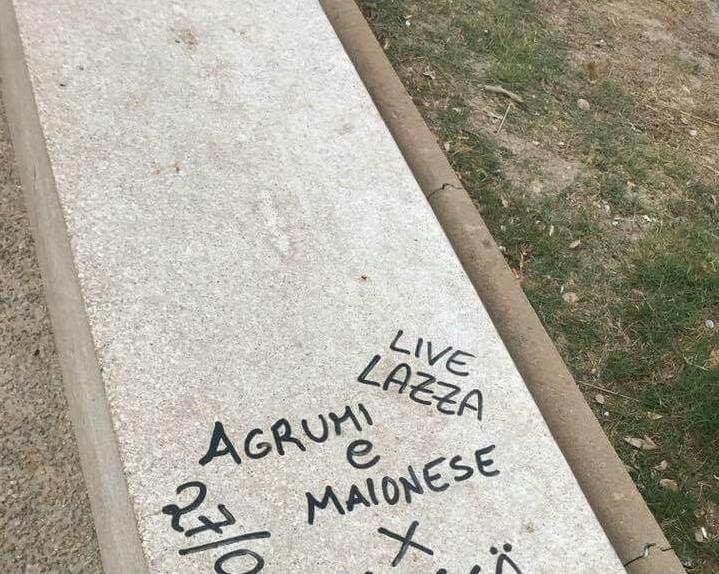 LIVE
LAZZA
AGRUMI
e
MAIONESE
27/0
X